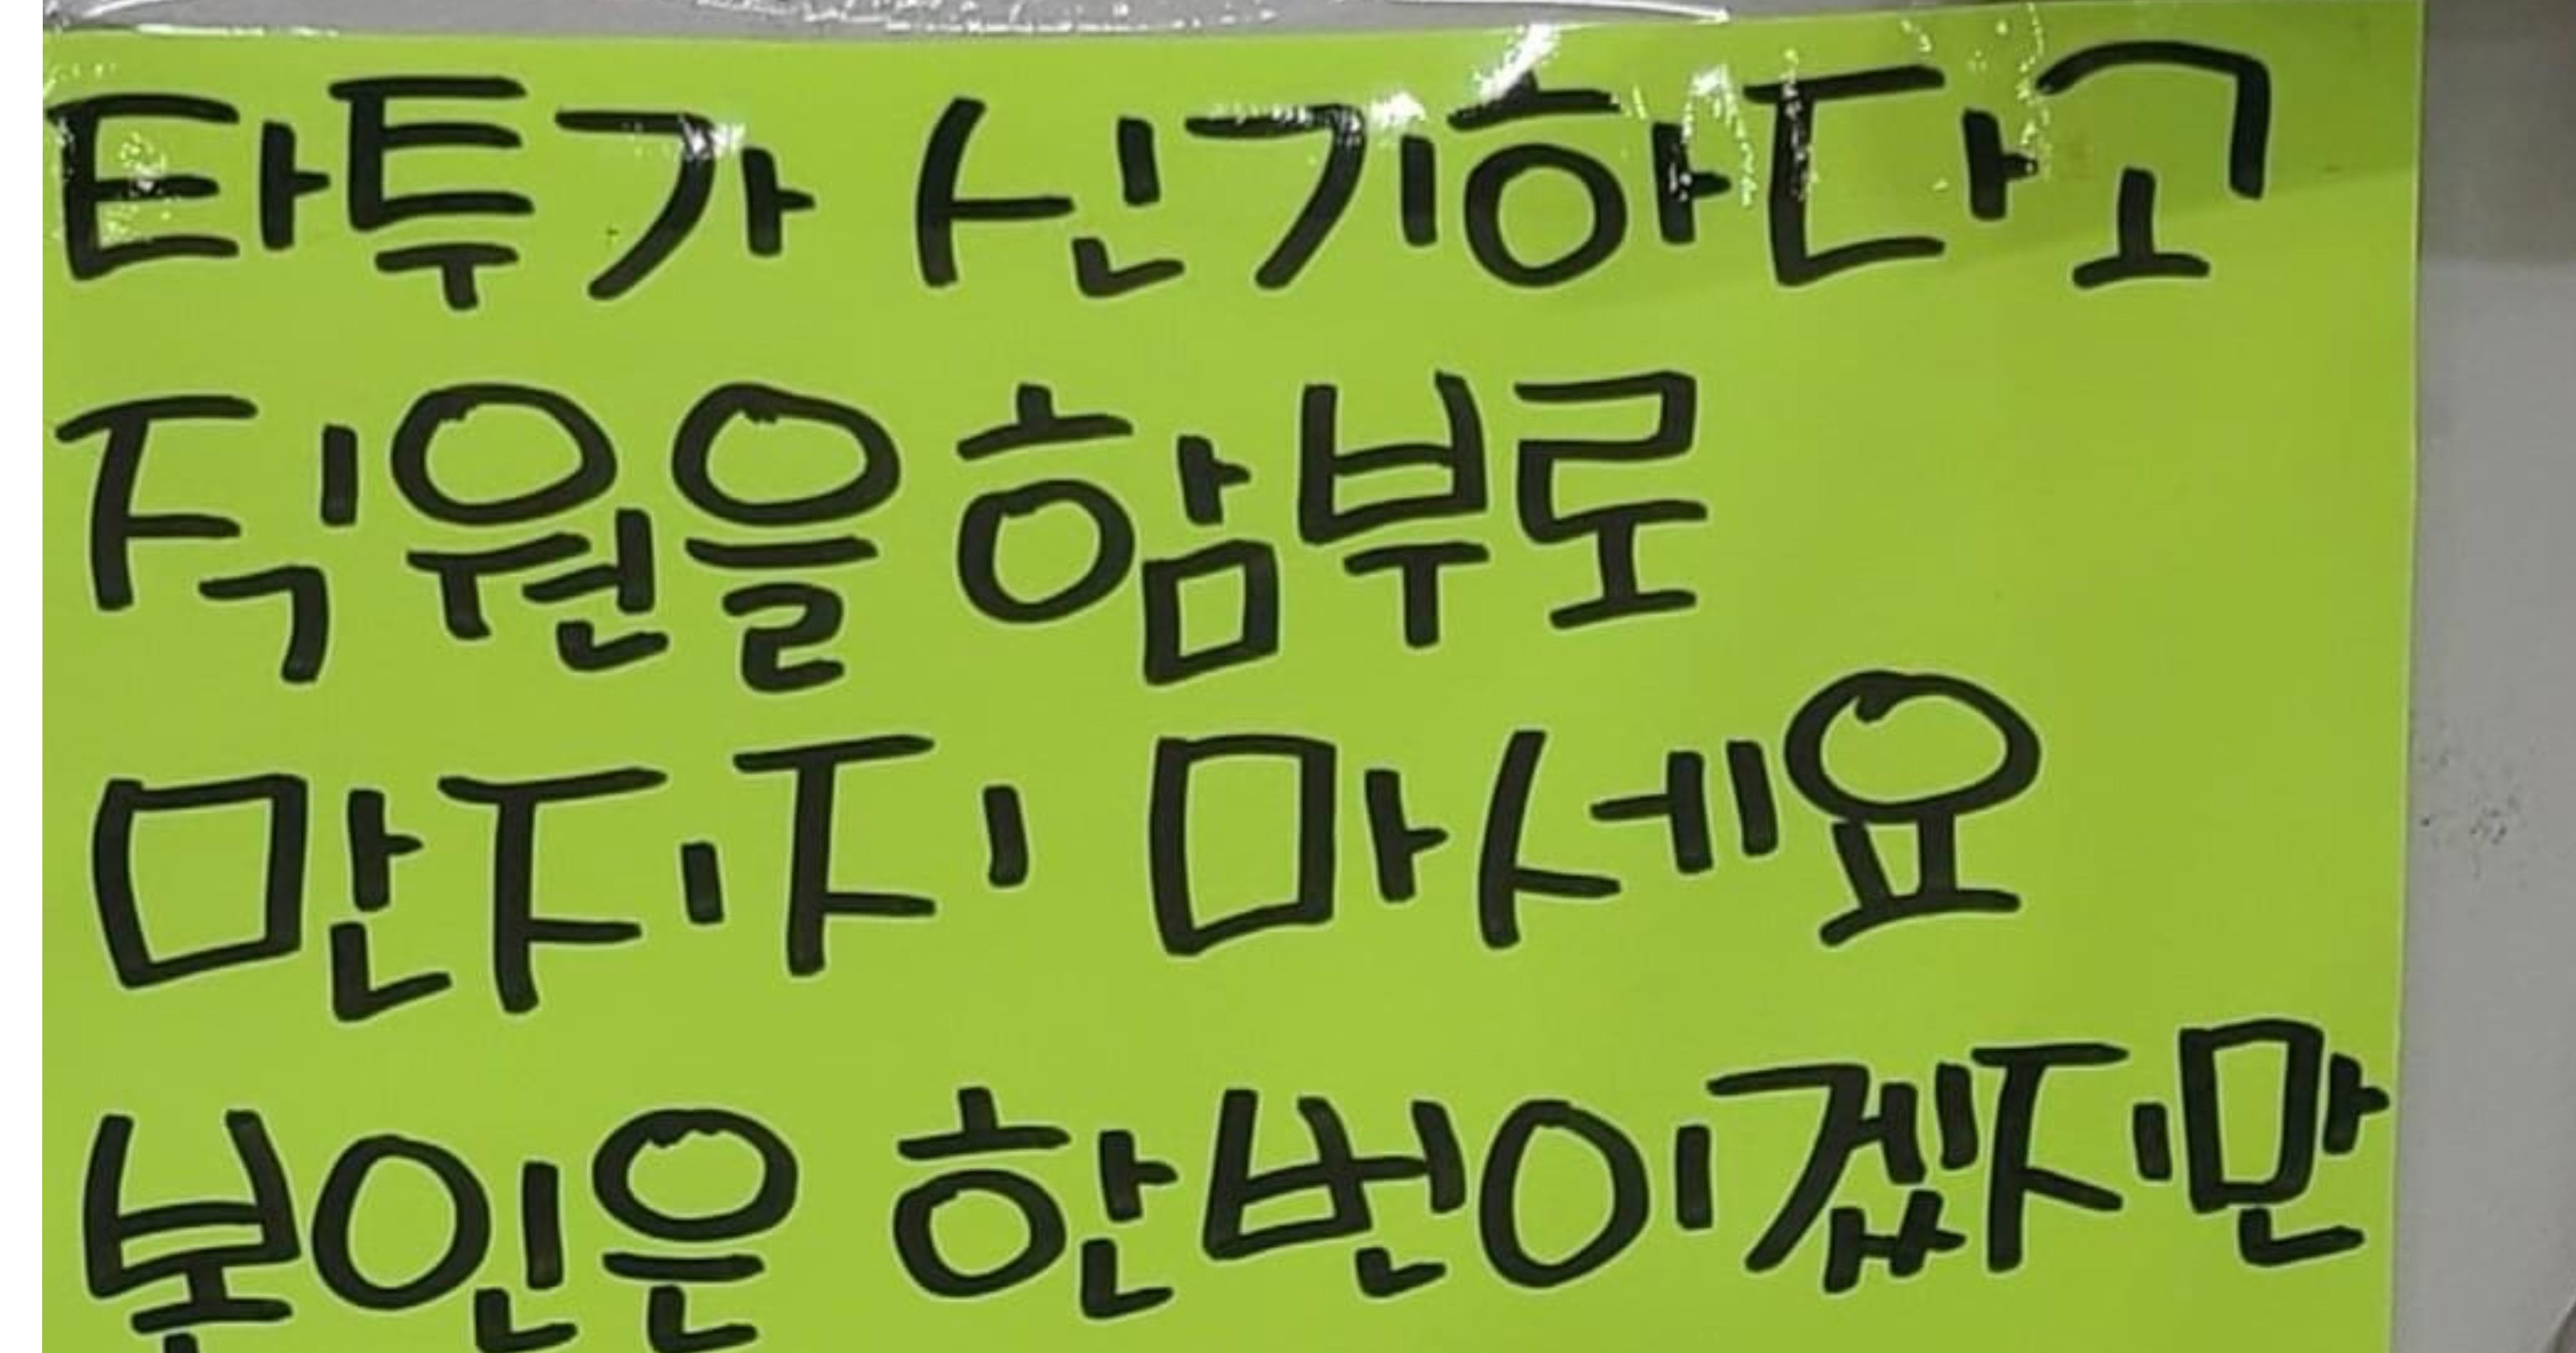 타투가 신기하다고
직원을 함부로
만지지 마세요
본인은 한번이겠지만